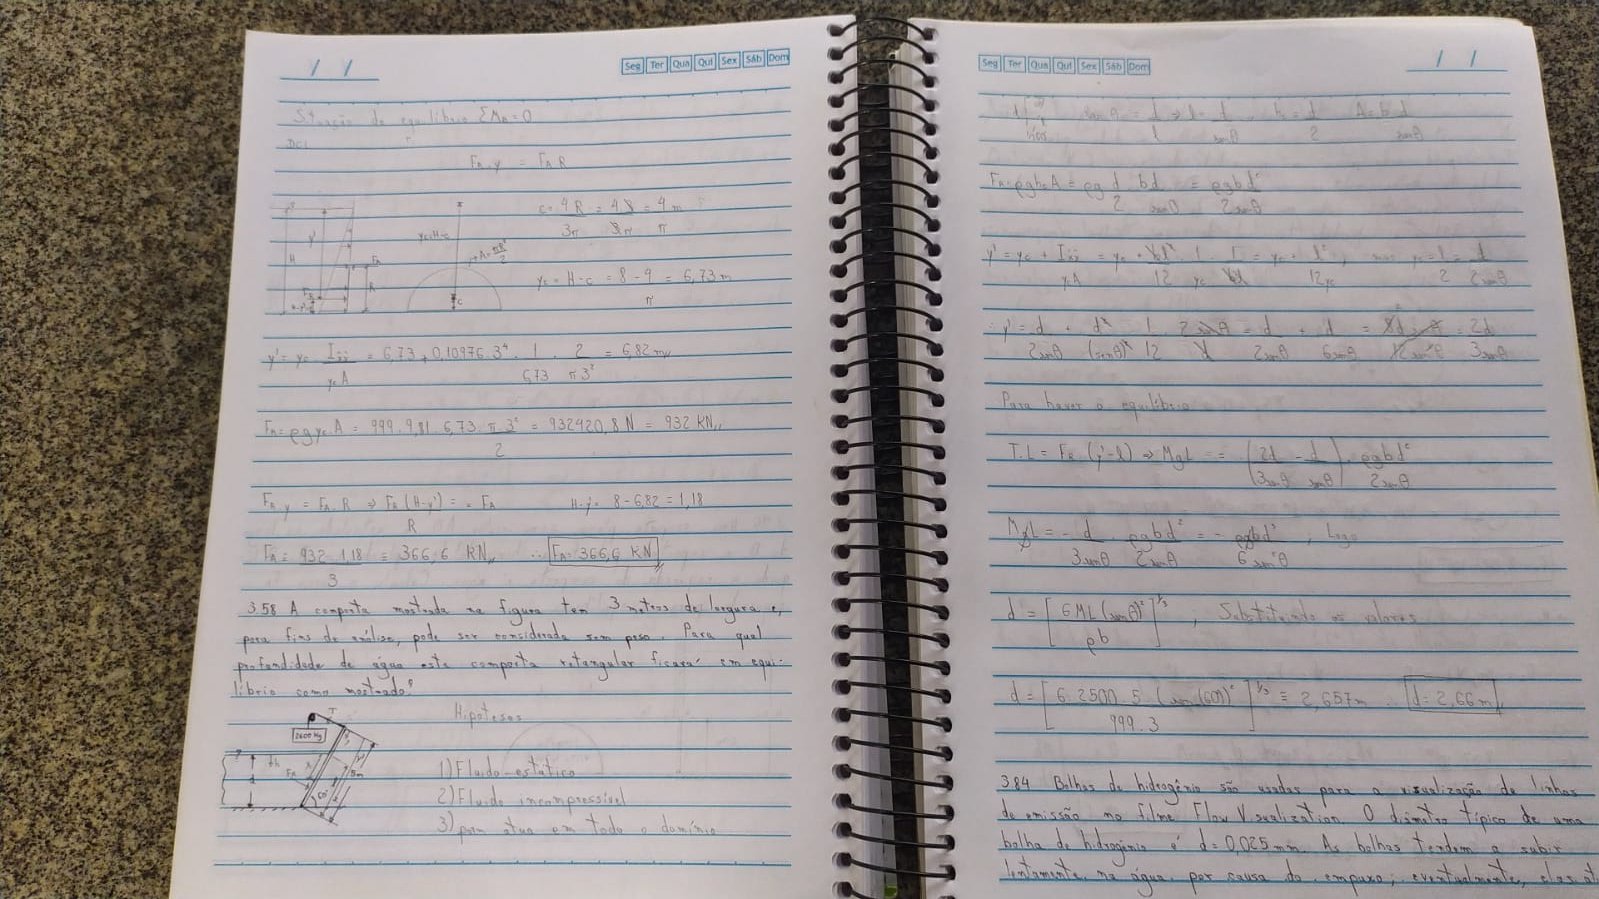 Seg Ter Qua Qui Sex Sáb Dom
Situação de equilíbrio ΣMa=0
DCL
FR.y = FA.R
c = 4R = 4.3 = 4 m
3π 3π π
yc=H-c
A=πR²
2
yc = H-c = 8-4 = 6,73 m
π
H
R
c
y' = yc Ixx = 6,73 + 0,10976.3⁴ . 1 . 2 = 6,82 m
yc A 6,73 π3²
FR = ρgyc A = 999.9,81.6,73.π3² = 932420,8 N = 932 KN
2
FR.y = FA.R ⇒ FR(H-y') = FA H-y' = 8-6,82 = 1,18
R
FA = 932.1,18 = 366,6 KN ∴ FA=366,6 KN
3
3.58 A comporta mostrada na figura tem 3 metros de largura e,
para fins de análise, pode ser considerada sem peso. Para qual
profundidade de água esta comporta retangular ficará em equi-
líbrio como mostrado?
Hipoteses
T
2500 Kg
5m
d
60°
1) Fluido estático
2) Fluido incompressível
3) patm atua em todo o domínio
Seg Ter Qua Qui Sex Sáb Dom
sen θ = d ⇒ l = d , hc = d A = b d
l senθ 2 senθ
FR=ρghcA = ρg d bd = ρgbd²
2 senθ 2senθ
y' = yc + Ixx = yc + bl³ 1 . 1 = yc + l² , mas yc = l = d
yc A 12 yc bl 12yc 2 2senθ
∴ y' = d + d² 1 . 2senθ = d + d = 2d
2senθ (senθ)² 12 d 2senθ 6senθ 3senθ
Para haver o equilíbrio
T.L = FR (y'-l) ⇒ MgL = = (2d - d) . ρgbd²
3senθ senθ 2senθ
MgL = - d . ρgbd² = - ρgbd³ , Logo
3senθ 2senθ 6sen²θ
d = [6ML(senθ)²]^1/3 , Substituindo os valores
ρb
d = [6.2500.5.(sen(60))²]^1/3 = 2,657m ∴ d=2,66m
999.3
3.84 Bolhas de hidrogênio são usadas para a visualização de linhas
de emissão no filme Flow Visualization. O diâmetro típico de uma
bolha de hidrogênio é d=0,025 mm. As bolhas tendem a subir
lentamente na água por causa do empuxo; eventualmente, elas